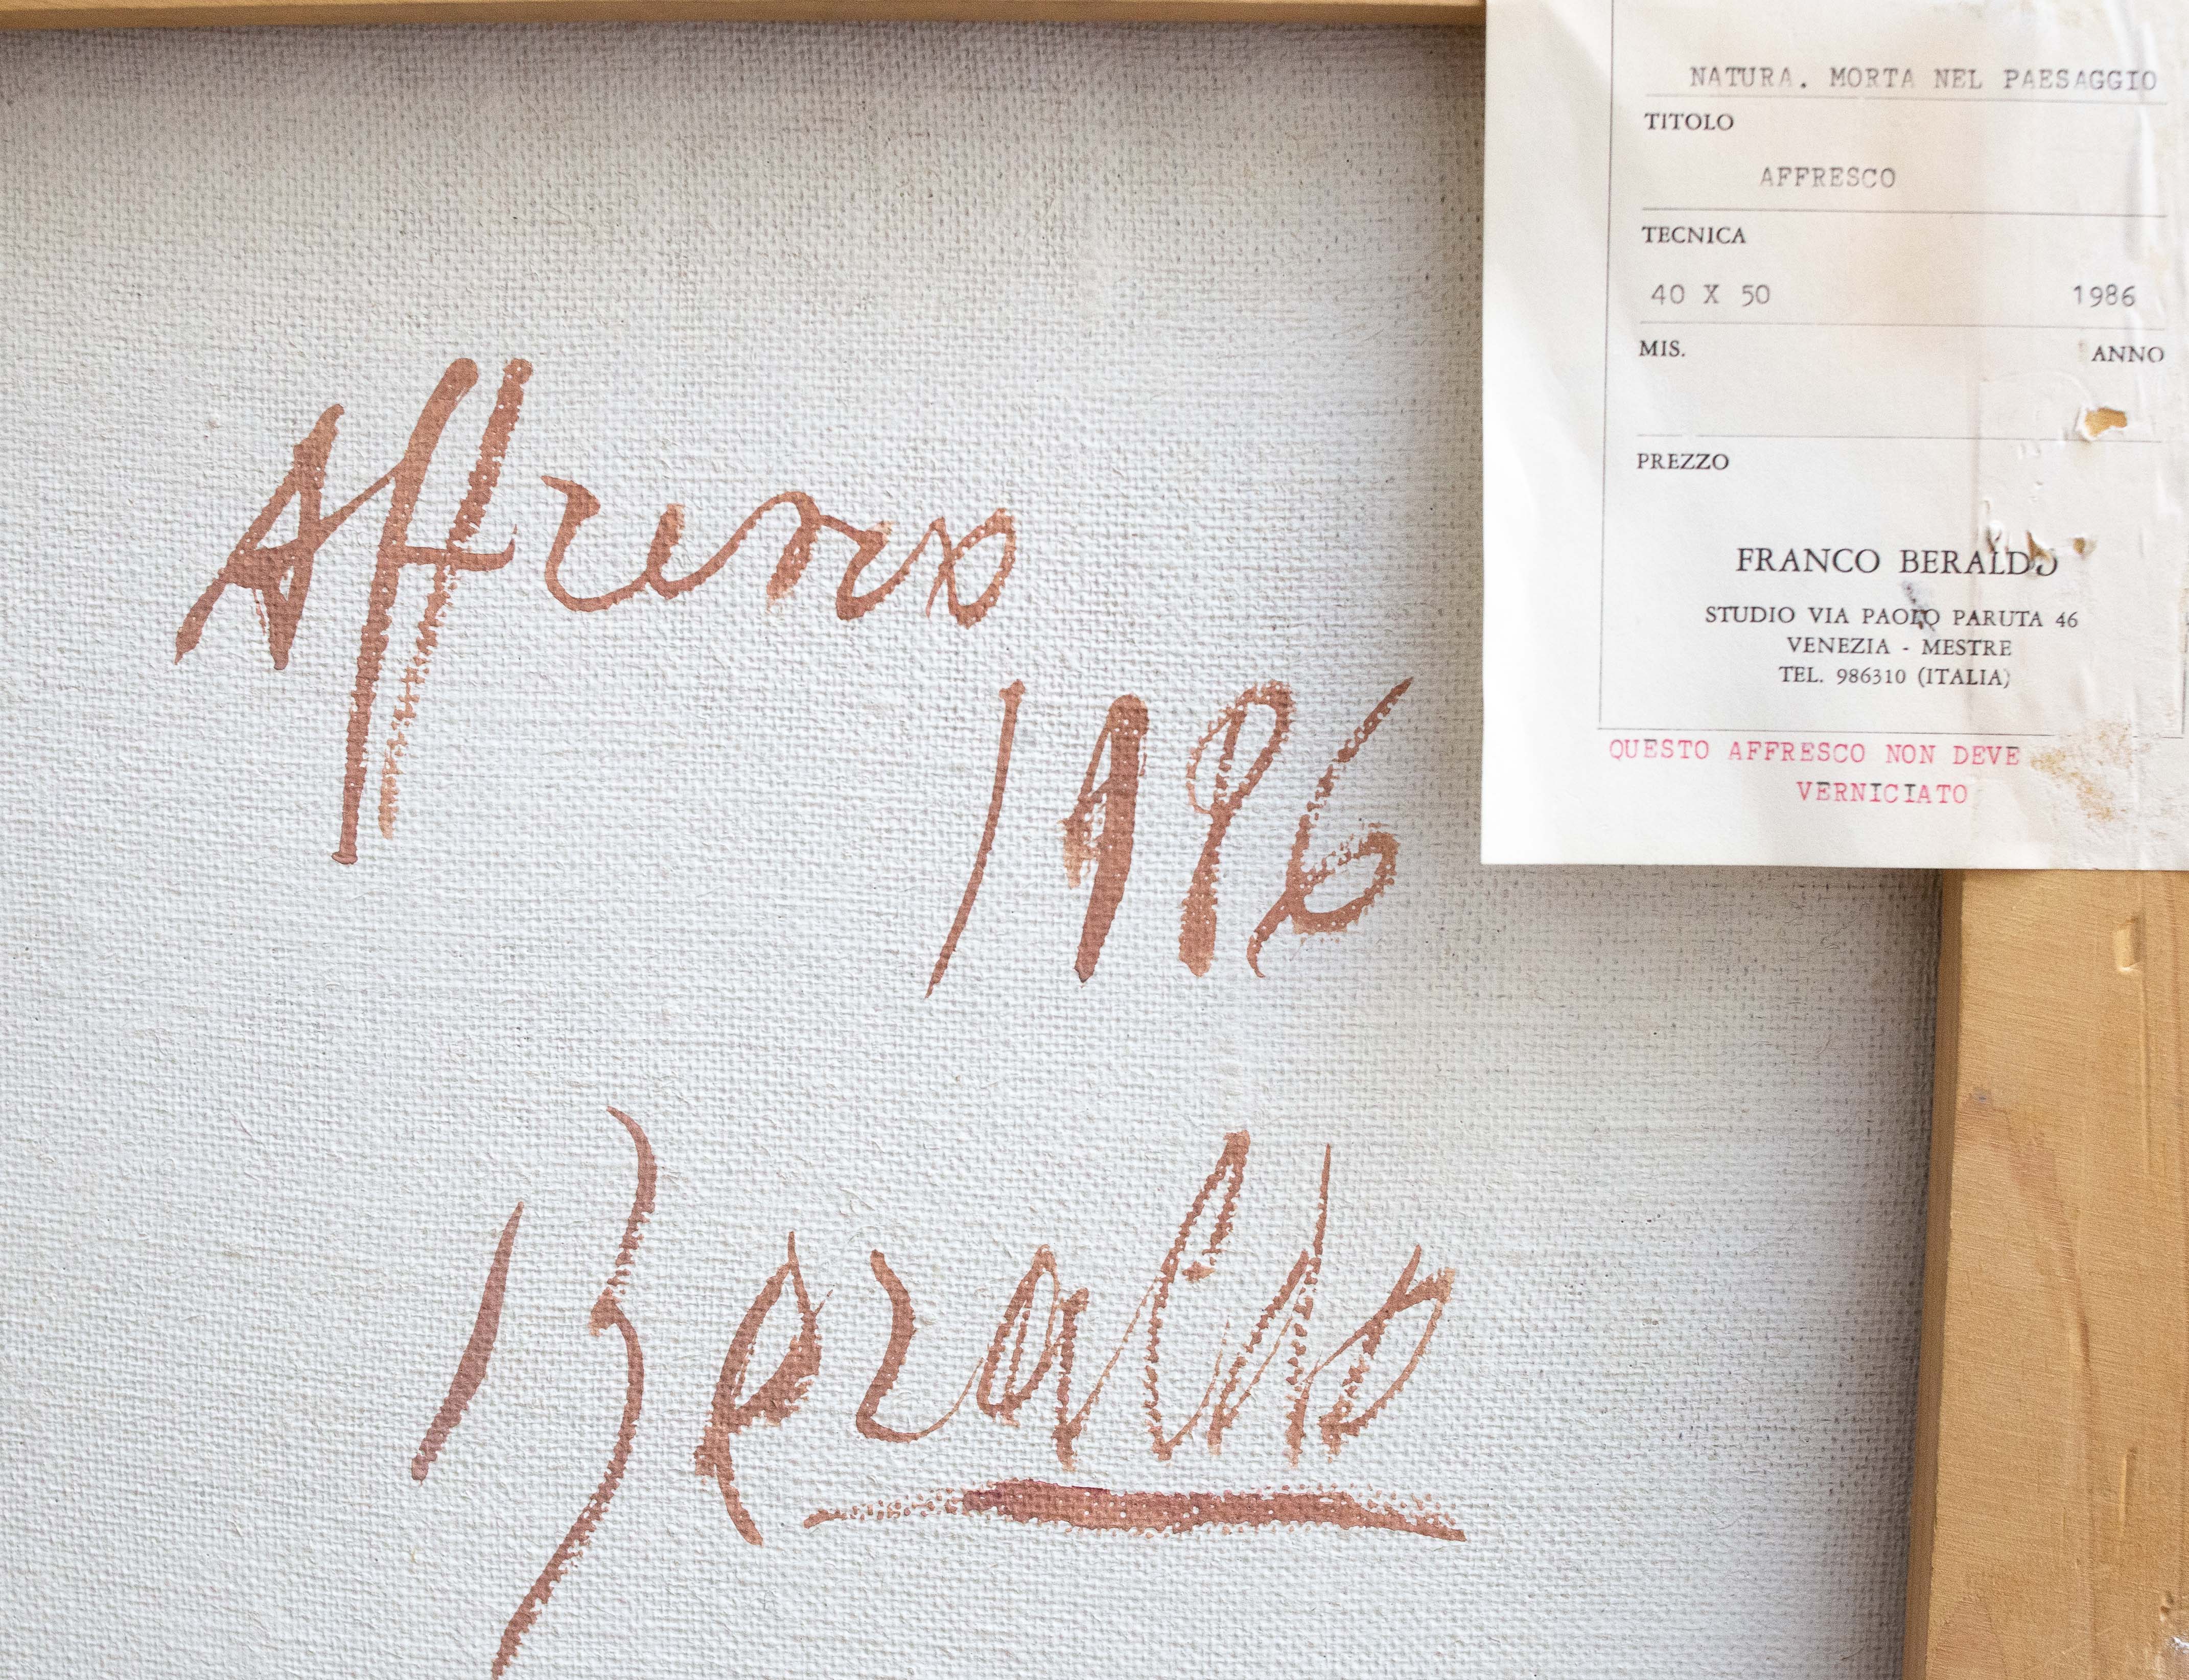 NATURA. MORTA NEL PAESAGGIO
TITOLO
AFFRESCO
TECNICA
40 X 50 1986
MIS. ANNO
PREZZO
FRANCO BERALDO
STUDIO VIA PAOLO PARUTA 46
VENEZIA - MESTRE
TEL. 986310 (ITALIA)
QUESTO AFFRESCO NON DEVE
VERNICIATO
Affresco
1986
Beraldo